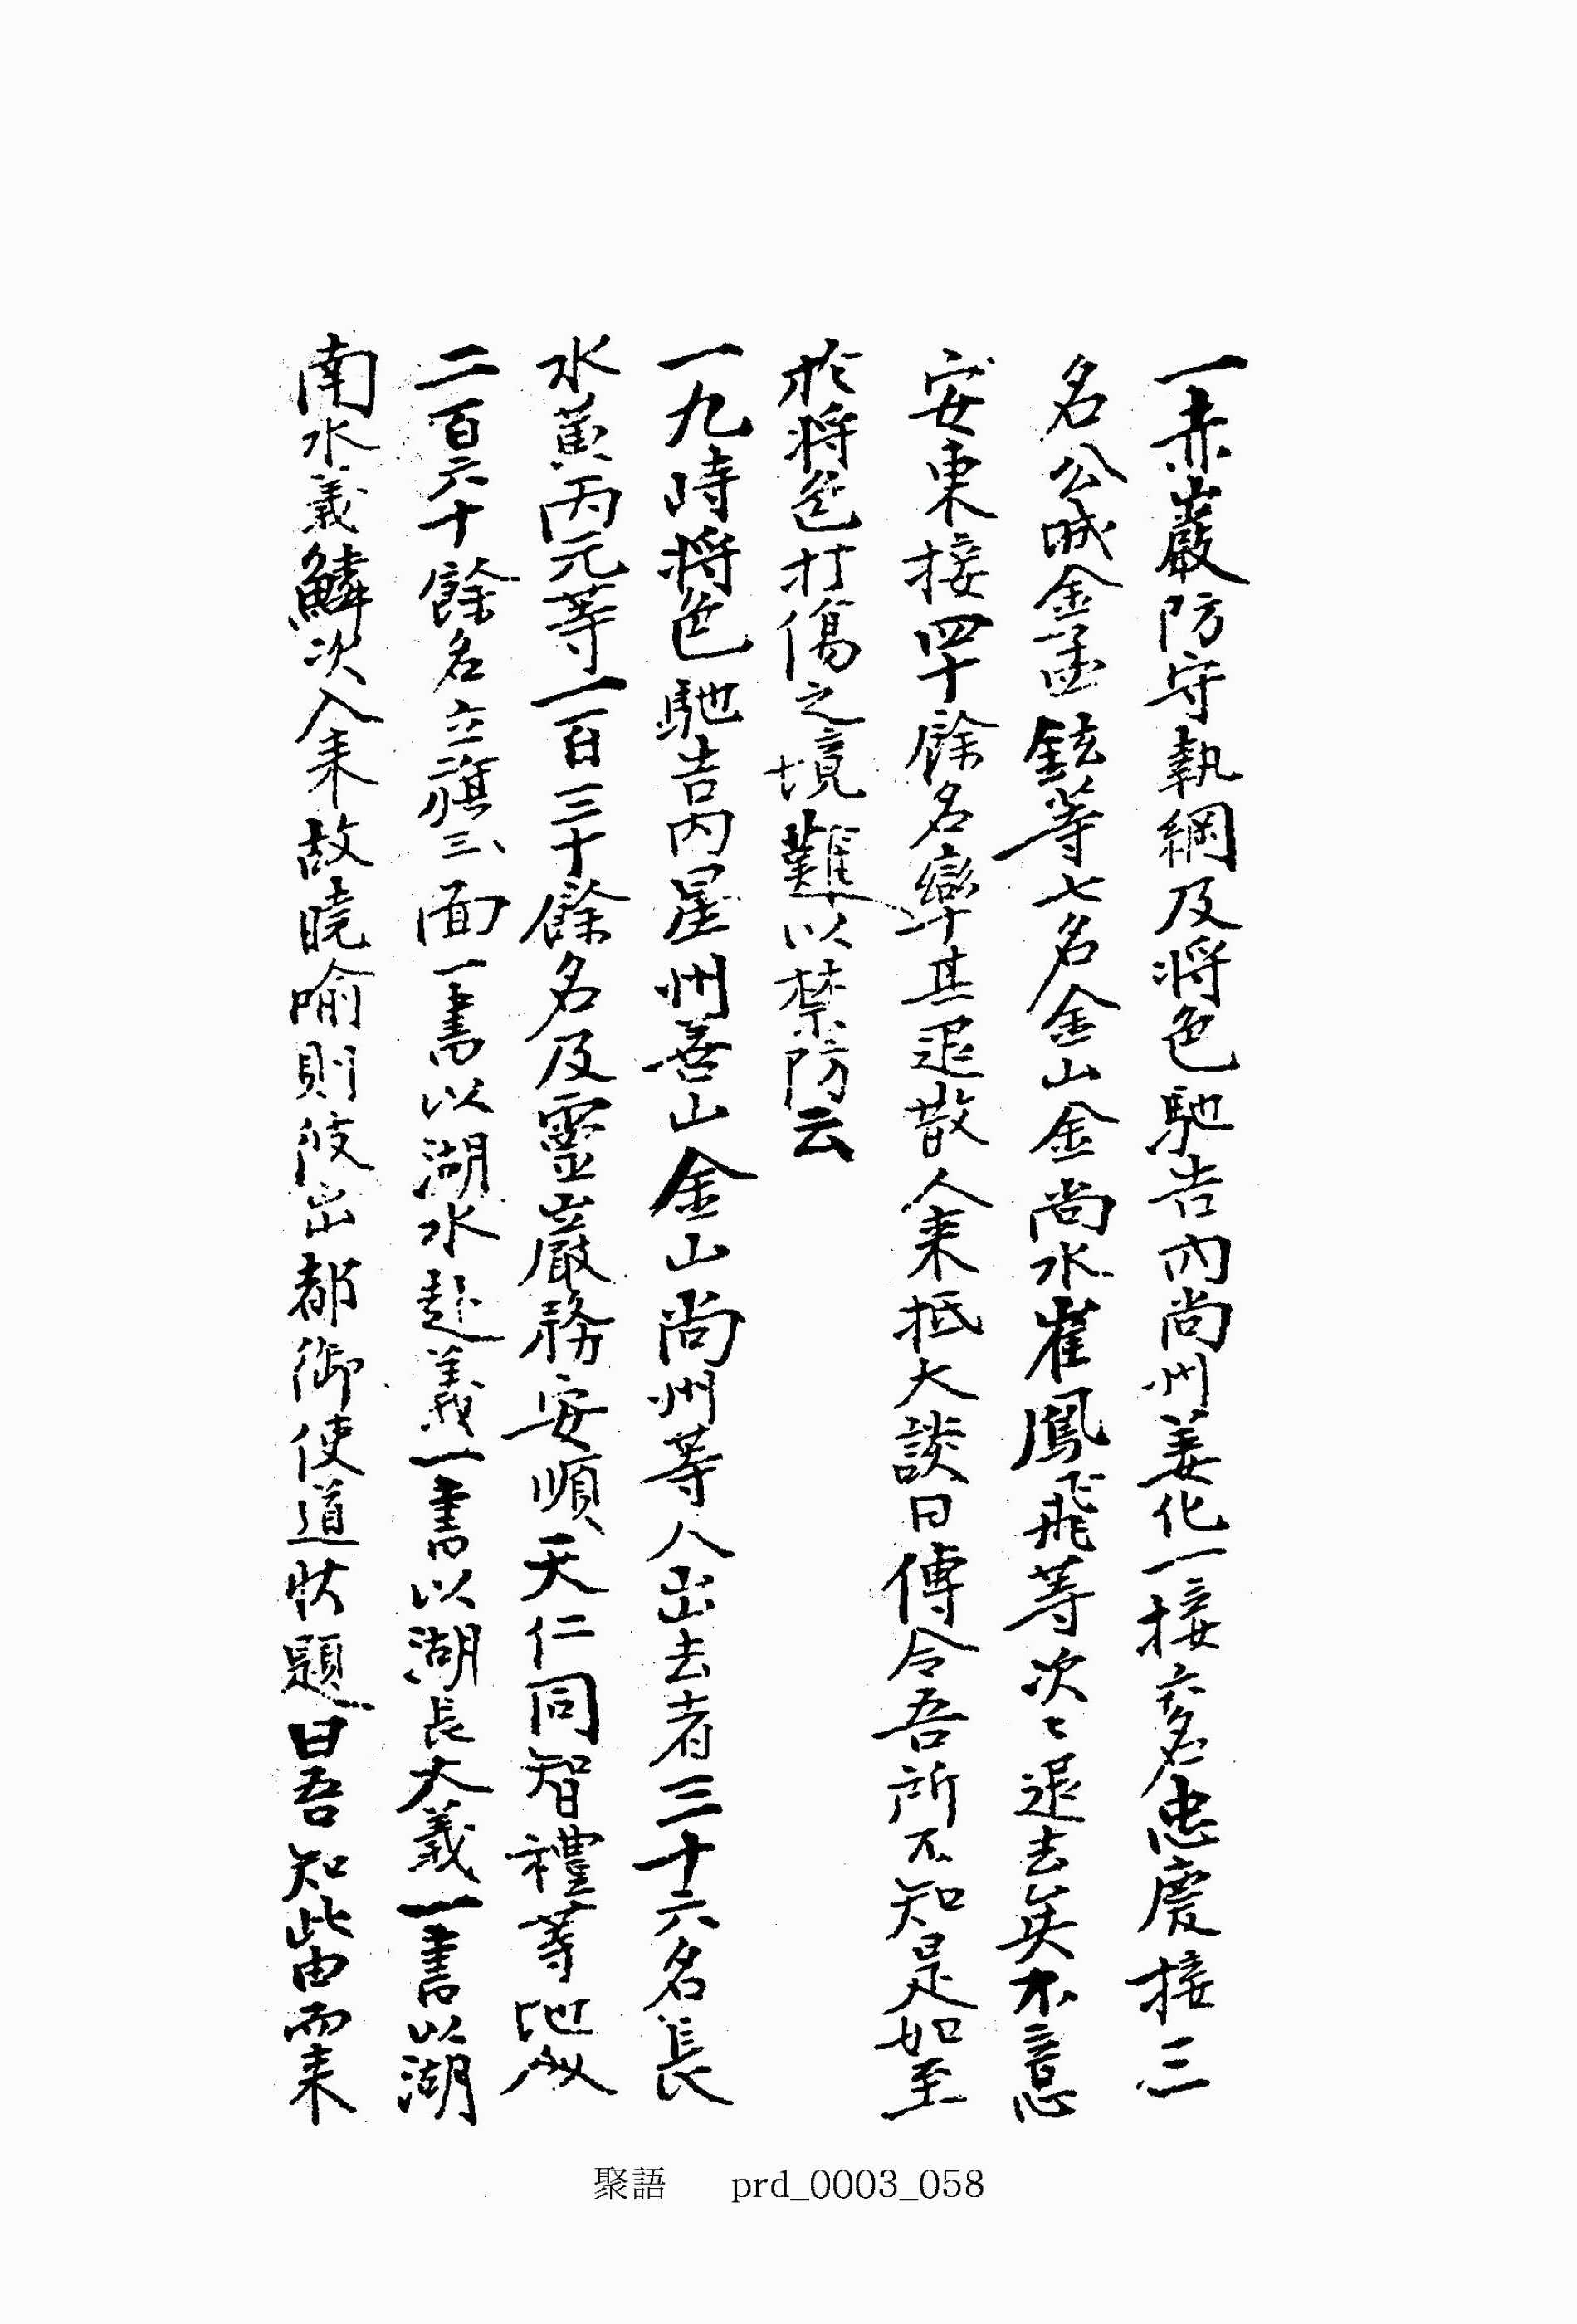 一赤巖防守執綱及將色馳告內尚州姜化一接六名忠慶接三
名公城金孟鉉等七名金山金尚水崔鳳飛等次〻退去矣不意
安東接四十餘名率其退散人来抵大談曰傳令吾所不知是如至
於將色打傷之境難以禁防云
一九時將色馳告內星州善山金山尚州等人出去者三十六名長
水黃丙元等一百三十餘名及靈巖務安順天仁同智禮等地
二百六十餘名立旗三面一書以湖水赴義一書以湖長大義一書以湖
南水義鱗次入来故曉喻則彼出都御使道狀題曰吾知此由而来
聚語 prd_0003_058